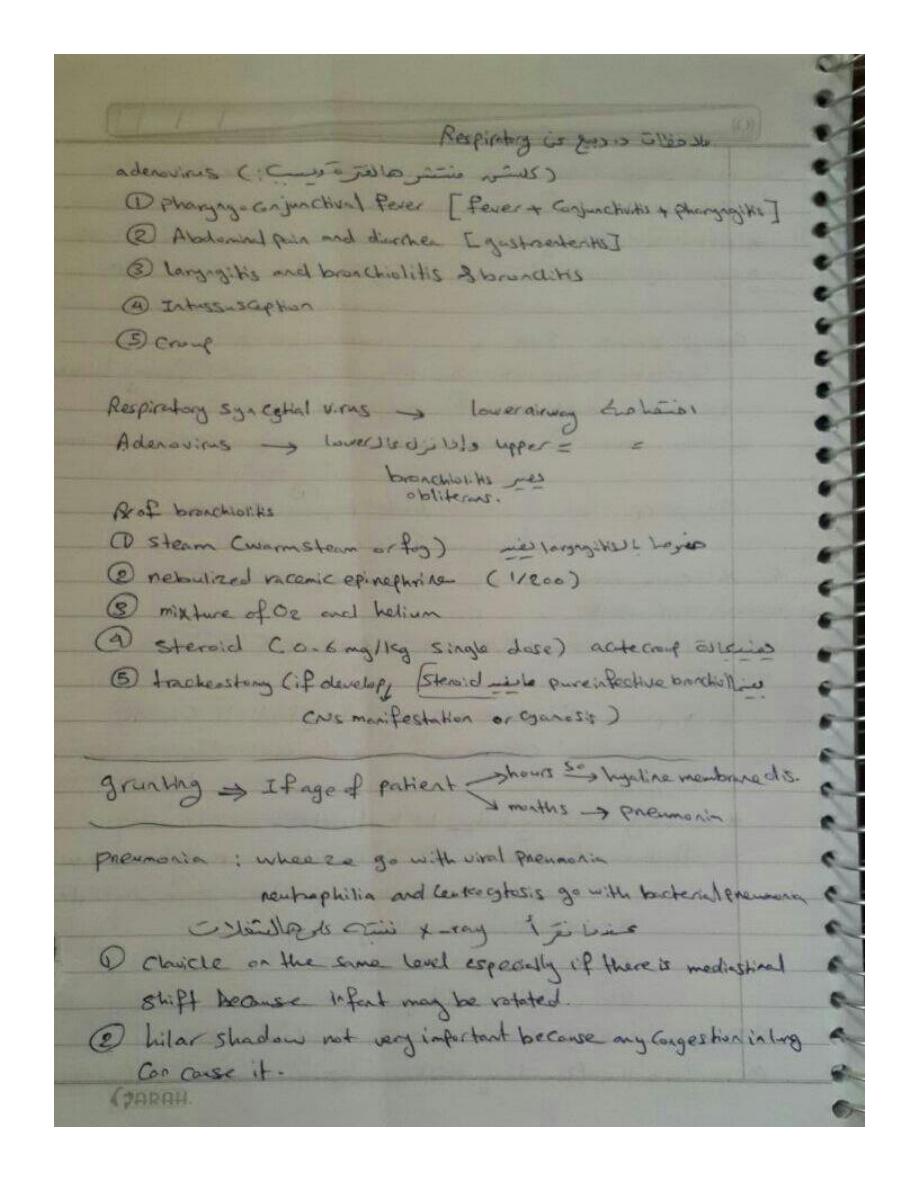 ملاحظات د. ربيع عن Respiratory
adenovirus (كلش منتشر هالفترة ويسبب :)
① pharyngo-conjunctival fever [fever + conjunctivitis + pharyngitis]
② Abdominal pain and diarrhea [gastroenteritis]
③ laryngitis and bronchiolitis & bronchitis
④ Intussusception
⑤ Croup
Respiratory syncytial virus → lower airway اختصاصه
Adenovirus → lower وإذا نزل عالـ upper = =
bronchiolitis يصير
obliterans.
Rx of bronchiolitis
① steam (warm steam or fog) خصوصا بالـ laryngitis يفيد
② nebulized racemic epinephrine (1/200)
③ mixture of O2 and helium
④ steroid (0.6 mg/kg single dose) acute croup
⑤ tracheostomy (if develop, steroid مايفيد pure infective bronchiol
CNS manifestation or cyanosis)
grunting ⇒ If age of patient → hours so → hyaline membrane dis.
→ months → pneumonia
pneumonia : wheeze go with viral pneumonia
neutrophilia and leukocytosis go with bacterial pneumonia
عندما نقرأ x-ray ننتبه على هالشغلات
① Clavicle on the same level especially if there is mediastinal
shift because infant may be rotated.
② hilar shadow not very important because any congestion in lung
Can cause it.
SARAH.